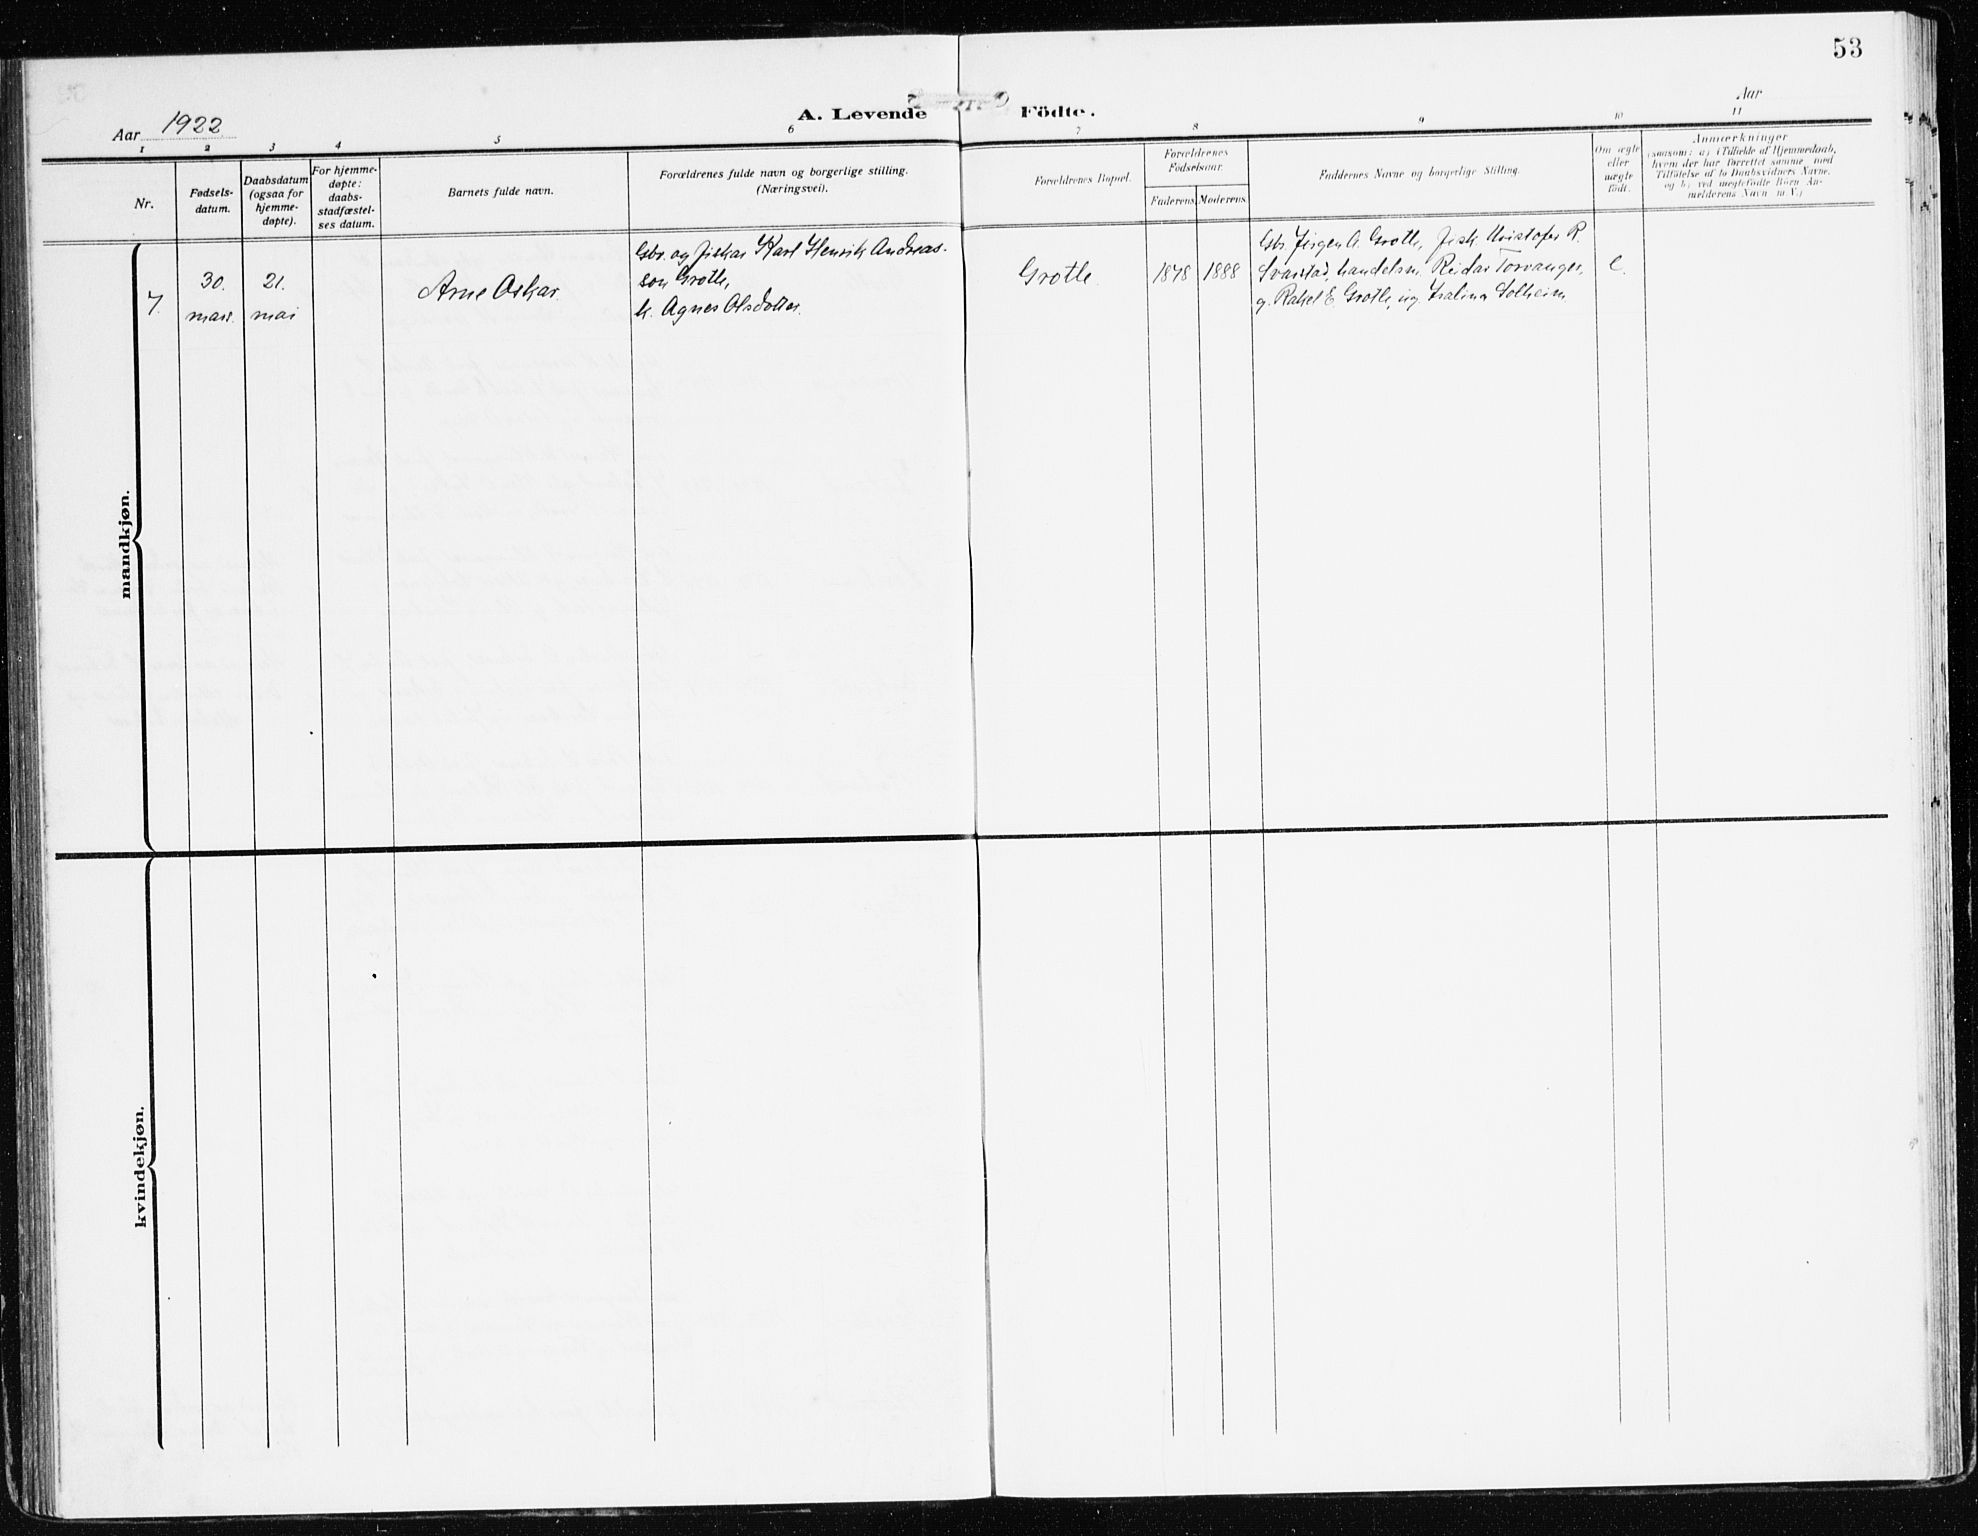 53
Aar 1922
A. Levende Födte.
Aar
1 2 3 4 5 6 7 8 9 10 11
Nr.
Fødsels-
datum.
Daabsdatum
(ogsaa for
hjemme-
døpte).
For hjemme-
døpte:
daabs-
stadfæstel-
ses datum.
Barnets fulde navn.
Forældrenes fulde navn og borgerlige stilling.
(Næringsvei).
Forældrenes Bopæl.
Forældrenes
Fødselsaar.
Faderens Moderens
Faddernes Navne og borgerlige Stilling.
Om ægte
eller
uægte
født.
Anmærkninger
(saasom: a) i Tilfælde af Hjemmedaab,
hvem der har forrettet samme, med
Tilføielse af to Daabsvidners Navne,
og b) ved uægtefødte Børn An-
melderens Navn m. V.)
mandkjøn.
7.
30.
mars.
21.
mai
Arne Oskar
Gbr. og fiskar Karl Henrik Andreas-
son Grotle,
k. Agnes Olsdotter.
Grotle.
1878
1888
Gbr. Jørgen A. Grotle, fisk. Kristofer R.
Svarstad, handelsm. Reidar Torvanger,
g. Rakel E. Grotle, ug. Solheim
e.
kvindekjøn.